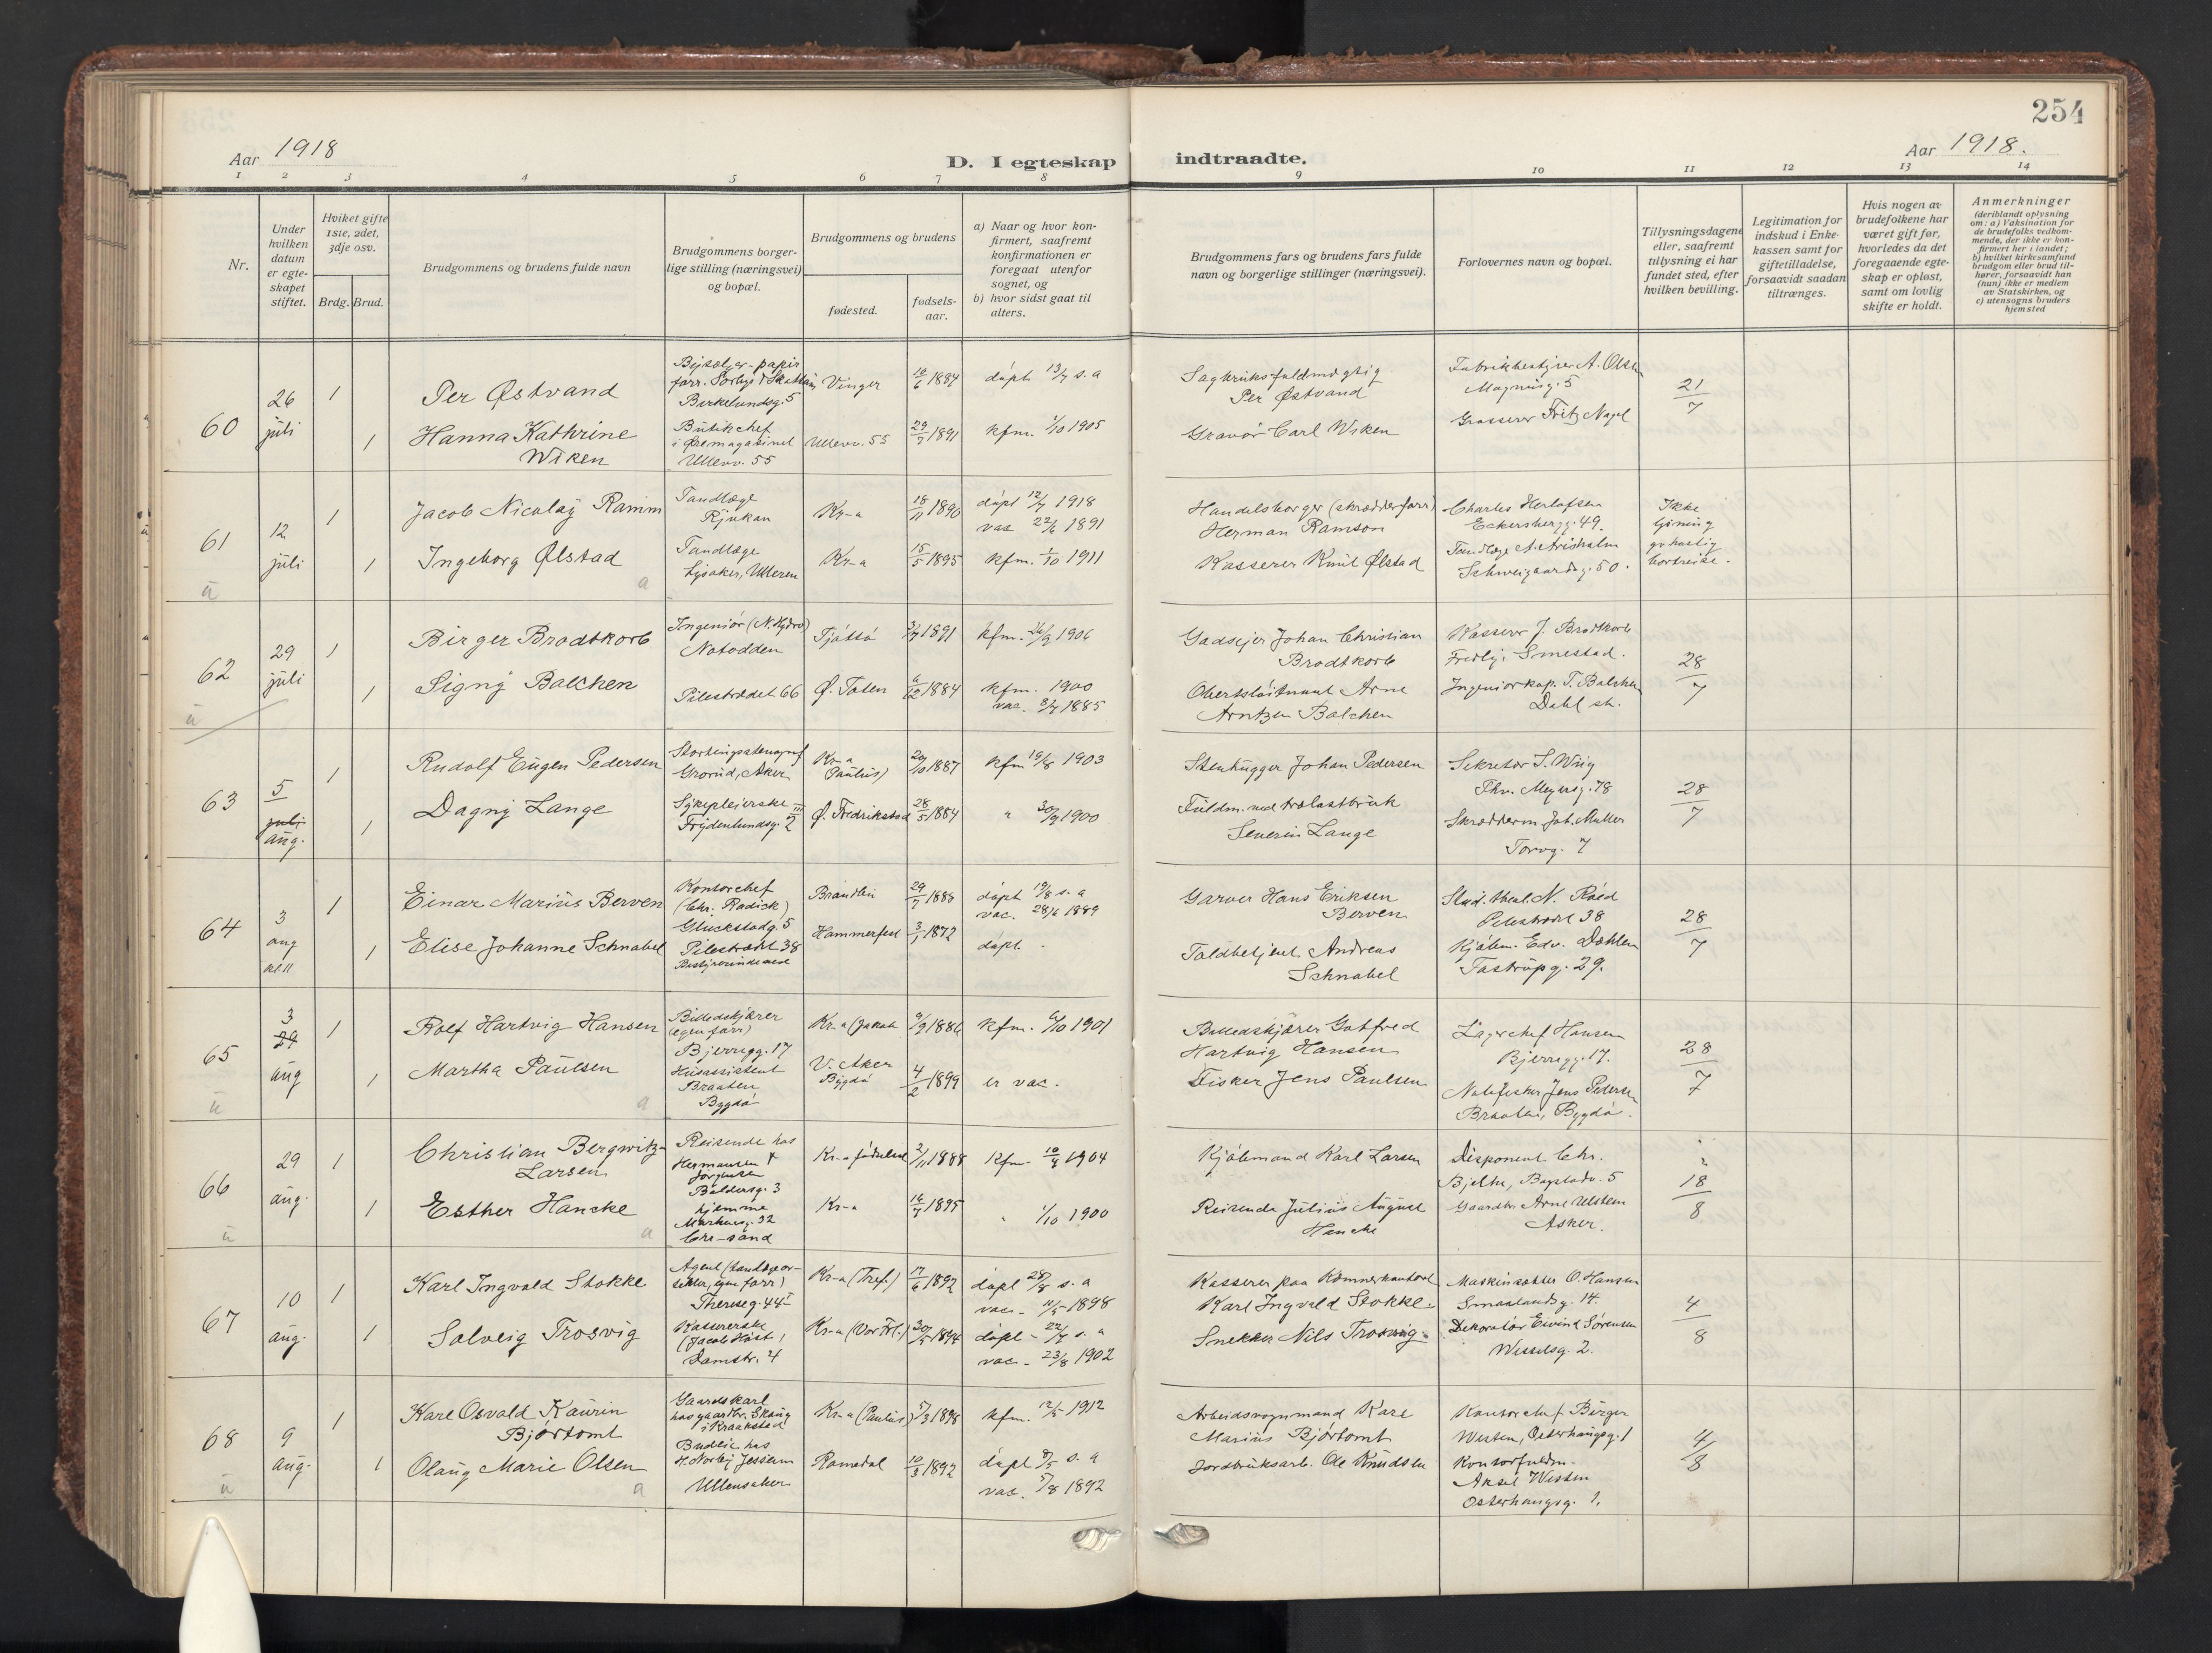 254
Aar 1918
D. I egteskap indtraadte.
Aar 1918.
1 2 3 4 5 6 7 8 9 10 11 12 13 14
Nr.
Under hvilken datum er egteskapet stiftet.
Hvilket gifte 1ste, 2det, 3dje osv.
Brdg. Brud.
Brudgommens og brudens fulde navn
Brudgommens borgerlige stilling (næringsvei) og bopæl.
Brudgommens og brudens
fødested.
fødselsaar.
a) Naar og hvor konfirmert, saafremt konfirmationen er foregaat utenfor sognet, og
b) hvor sidst gaat til alters.
Brudgommens fars og brudens fars fulde navn og borgerlige stillinger (næringsvei).
Forlovernes navn og bopæl.
Tillysningsdagene eller, saafremt tillysning ei har fundet sted, efter hvilken bevilling.
Legitimation for indskud i Enkekassen samt for giftetilladelse, forsaavidt saadan tiltrænges.
Hvis nogen av brudefolkene har været gift før, hvorledes da det foregaaende egteskap er opløst, samt om lovlig skifte er holdt.
Anmerkninger
(deriblandt oplysning om: a) Vaksination for de brudefolks vedkommende, der ikke er konfirmert her i landet; b) hvilket kirkesamfund brudgom eller brud tilhører, forsaavidt han (hun) ikke er medlem av Statskirken, og c) utensogns bruders hjemsted
60
26 juli
1
Per Østvand
Birkelundsg. 5
Vinger
1884
døpt 13/7 s. a
Sagbruksfuldmægtig
Per Østvand
Fabrikbestyrer A. Olsen
Magnusg. 5
21/7
1
Hanna Kathrine
Wiken
Butikchef
Ullevv. 55
Ullevv. 55
1891
kfm. 1/10 1905
Gravør Carl Wiken
Grosserer Fritz Nagel
61
12 juli
1
Jacob Nicolay Ramm
Tandlæge
Rjukan
Kr-a
18/11 1890
døpt 12/7 1918
vac 22/6 1891
Handelsborger (skrædderforr)
Herman Ramson
Charles Herlofsen
Eckersbergg. 49.
Ikke lysning
1
Ingeborg Ølstad
Tandlæge
Lysaker, Ulleren
Kr-a
15/5 1895
kfm. 1/10 1911
Kasserer Emil Ølstad
Schweigaardsg. 50.
62
29 juli
1
Birger Brodtkorb
Ingeniør (N. Hydro)
Notodden
Tjøttø
1891
kfm. 1906
Gadsejer Johan Christian
Brodtkorb
Kasserer J. Brodtkorb
Smestad.
28/7
1
Signy Balchen
Pilestrædet 66
Ø. Toten
1884
kfm. 1900
vac. 1885
Oberstløitnant Arne
Arntzen Balchen
Ingeniørkap. T. Balchen
63
5 juli aug.
1
Rudolf Eugen Pedersen
Stortingsstenograf
Grorud, Aker
Kr-a
(Paulus)
20/10 1887
kfm 1903
Stenhugger Johan Pedersen
Sekretær S. Wiig
Thv. Meyersg. 78
28/7
1
Dagny Lange
Sykepleierske
Frydenlundsg. 2 III
Ø. Fredrikstad
28/5 1884
" 1900
Fuldm. ved trælastbruk
Severin Lange
Skrædderm. Joh. Muller
Torvg. 7
64
3 aug kl. 11
1
Einar Marius Berven
Kontorchef
(Chr. Radick)
Gluckstadg. 5
29/7 1888
døpt 19/8 s. a
vac. 28/6 1889
Garver Hans Eriksen
Berven
Stud. theol. N. Røed
Pilestræde 38
28/7
1
Elise Johanne Schnabel
Pilestrædet 38
Hammerfest
3/1 1872
døpt
Toldbetjent Andreas
Schnabel
Kjøbm. Edv. Dahlen
Tostrupg. 29.
65
3 29 aug
1
Rolf Hartvig Hansen
Billedskjærer
(egen forr)
Bjerregg. 17
Kr-a (Jakob
9/9 1886
kfm. 6/10 1901
Billedskjærer Gotfred
Hartvig Hansen
Lagerchef Hansen
Bjerregg. 17.
28/7
1
Martha Paulsen
Husassistent
Braaten
Bygdø
V. Aker
Bygdø
4/2 1899
er vac.
Fisker Jens Paulsen
Notefisker Jens Pedersen
Braaten, Bygdø.
66
29 aug.
1
Christian Bergwitz-
Larsen
Reisende hos
Hermansen &
Jørgensen
Baldersg. 3
1888
kfm. 10/4 1904
Kjøbmand Karl Larsen
Disponent Chr.
Bjelke, Bogstadv. 5
18/8
1
Esther Hancke
hjemme
Markensg. 32
Chr-sand
Kr-a
1895
" 1/10 1900
Reisende Julius August
Hancke
Gaardbr. Arne Ulstein
Asker.
67
10 aug.
1
Karl Ingvald Stokke
Thereseg. 44 I
Kr-a (Tref.)
17/6 1892
døpt 28/8 s. a
vac. 11/5 1898
Kasserer paa Kæmnerkontoret
Karl Ingvald Stokke.
Maskinsætter O. Hansen
Smaalandsg. 14.
4/8
1
Solveig Trosvig
Kassererske
(Jacob Höst)
Damstr. 4
Kr-a (Vor Fr.)
1894
døpt 22/7 s. a
vac. 23/8 1902
Snekker Nils Trosvig.
Dekoratør Eivind Sørensen
Wesselsg. 2.
68
9 aug.
1
Karl Osvald Kaurin
Bjørtomt
Gaardskarl
hos gaardbr. Skaug
i Kraakstad
Kr-a (Paulus)
1898
kfm. 12/5 1912
Arbeidsvognmand Karl
Marius Bjørtomt
Kontorchef Birger
Westen, Osterhausg. 1
4/8
1
Olaug Marie Olsen
Budeie hos
H. Norby Jessum
Ullensaker
Romedal
10/3 1892
døpt 8/5 s. a
vac. 1892
Jordbruksarb. Ole Knudsen
Kontorfuldm.
Aksel Westen
Osterhausg. 1.